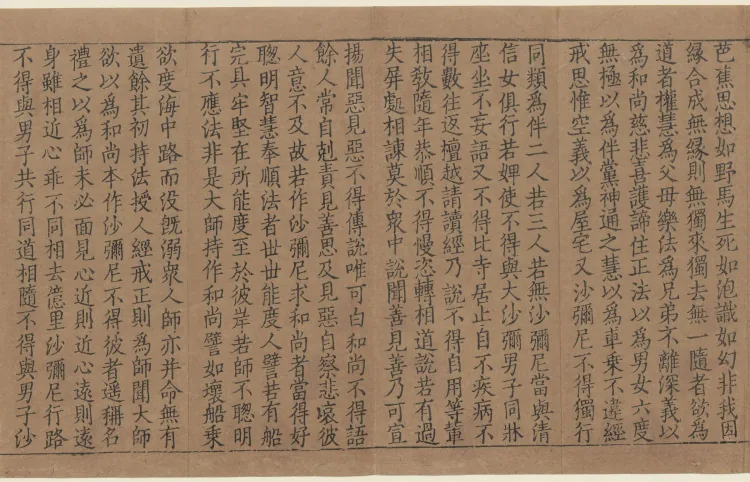 芭蕉思想如野馬生死如泡識如幻非我因
縁合成無縁則無獨來獨去無一隨者欲為
道者權慧為父母樂法為兄弟不離深義以
為和尚慈悲喜護諦住正法以為男女六度
無極以為伴黨神通之慧以為車乗不違經
戒思惟空義以為屋宅又沙彌尼不得獨行
同類為伴二人若三人若無沙彌尼當與清
信女俱行若婢使不得與大沙彌男子同牀
座坐不妄語又不得比寺居止自不疾病不
得數往返檀越請讀經乃說不得自用等軰
相敎隨年恭順不得慢恣轉相道說若有過
失屏處相諫莫於衆中說聞善見善乃可宣
揚聞惡見惡不得傳說唯可白和尚不得語
餘人常自剋責見善思及見惡自察悲哀彼
人意不及故若作沙彌尼求和尚者當得好
聰明智慧奉順法者世世能度人譬若有船
完具牢堅在所能度至於彼岸若師不聰明
行不應法非是大師持作和尚譬如壞船乗
欲度海中路而没旣溺衆人師亦并命無有
遺餘其初持法授人經戒正則為師聞大師
欲以為和尚本作沙彌尼不得彼者遥稱名
禮之以為師未必面見心近則近心遠則遠
身雖相近心乖不同相去億里沙彌尼行路
不得與男子共行同道相隨不得與男子沙